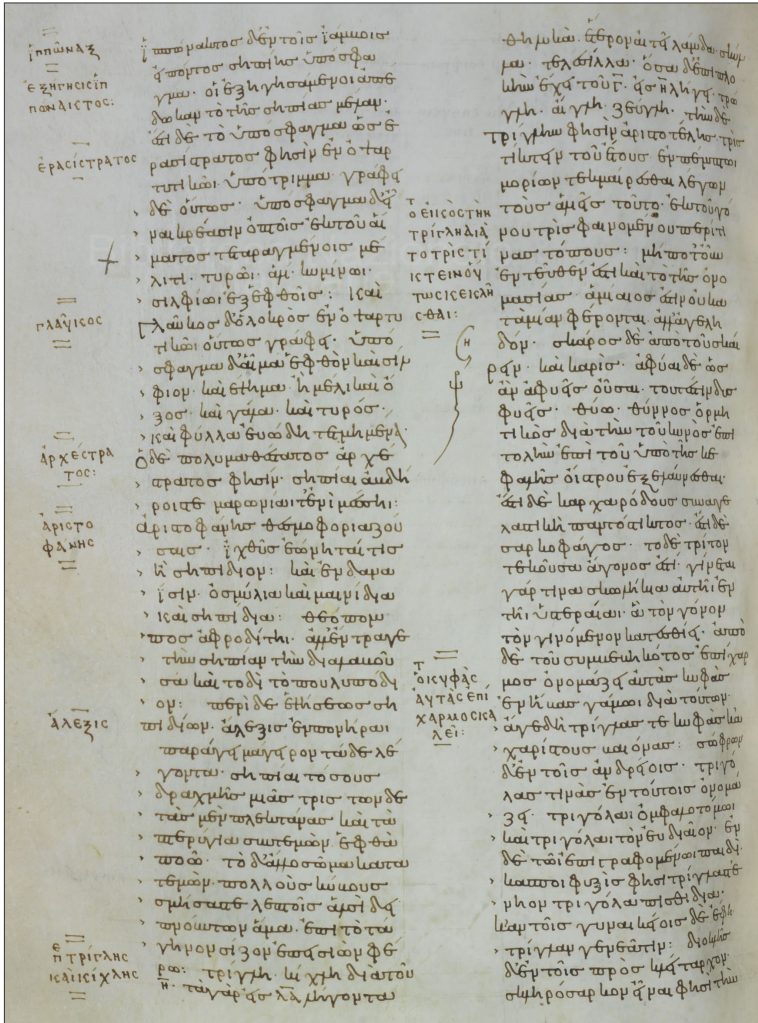 ἱππῶναξ
ἐξήγησις ἱπ
πώνακτος:
ἐρασίστρατος
γλαῦκος
ἀρχέστρα
τος:
ἀριστο
φάνης
ἄλεξις
π τρίγλης
καὶ κίχλης
ἱππώνακτος δ' ἐν τοῖς ἰάμβοις
εἰπόντος σηπίης ὑπόσφα
γμα· οἱ ἐξηγησάμενοι ἀπέ
δωκαν τὸ τῆς σηπίας μέλαν·
ἐστὶ δὲ τὸ ὑπόσφαγμα ὡς ἐ
ρασίστρατος φησὶν ἐν ὀψαρ
τυτικῶι· ὑπότριμμα· γράφει
δὲ οὕτως· ὑπόσφαγμα δ' εἶ
ναι κρέασιν ὀπτοῖς ἐκ τοῦ αἵ
ματος τεταραγμένοις μέ
λιτι· τυρῶι· ἁλί· κυμίνωι·
σιλφίωι ἑξεφθοῖς: καὶ
γλαῦκος δ' ὁ λοκρὸς ἐν ὀψαρτυ
τικῶι οὕτως γράφει· ὑπό
σφαγμα δ' αἷμα ἑφθὸν καὶ σίλ
φιον· καὶ ἕψημα· ἢ μέλι καὶ ὄ
ξος· καὶ γάλα· καὶ τυρός·
καὶ φύλλα εὐώδη τετμημένα·
ὁ δὲ πολυμαθέστατος ἀρχέ
στρατος φησίν· σηπίαι ἀβδή
ροις τε μαρωνίαι τ' ἐνὶ μέσσηι:
ἀριστοφάνης θεσμοφοριαζού
σαις· ἰχθῦς ἐώνηται τις
ἢ σηπίδιον: καὶ ἐν δανα
ΐσιν· ὀσμύλια καὶ μαινίδια
καὶ σηπίδια: θεόπομ
πος ἀφροδίτηι· ἀλλ' ἔντραγε
τὴν σηπίαν τηνδὶ λαβοῦ
σα καὶ τοδὶ τὸ πουλυπόδι
ον: περὶ δὲ ἑψήσεως ση
πιδίων· ἄλεξις ἐν πονήραι
παράγει μάγειρον τάδε λέ
γοντα· σηπίαι τόσους
δραχμῆς μιᾶς τρὶς τῶν δὲ
τὰς μὲν πλεκτάνας καὶ τὰ
πτερύγια συντεμὼν ἑφθὰ
ποῶ· τὸ δ' ἄλλο σῶμα κατα
τεμὼν πολλοὺς κύβους
σμήσας τε λεπτοῖς ἁλσὶ δει
πνούντων ἅμα· ἐπὶ τὸ τά
γηνον σίζον ἐπεισιὼν φέ
ρω: τρίγλη· κίχλη διὰ τοῦ
η· τὰ γὰρ εἰς λα λήγοντα
ὅτι ἐπίσης τὴν
τρίγλην διὰ
τὸ τρὶς τί
κτειν οὕ
τως κεκλῆ
σθαι:
ὅτι κυφὰς
αὐτὰς ἐπί
χαρμος κα
λεῖ:
θηλυκὰ· ἕτερον αἰτεῖ λάμβδα· σκύλ
λα· τελέσιλλα· ὅσα δὲ ἐπιπλο
κὴν ἔχει τοῦ γ· εἰς η λήγει· τρώ
γλη· αἴγλη· ζεύγλη· τὴν δὲ
τρίγλην φησὶν ἀριστοτέλης τρὶς
τίκτειν τοῦ ἔτους· ἐν πέμπτωι
μορίων τεκμαίρεσθαι λέγων
τοὺς ἁλιεῖς τοῦτο· ἐκ τοῦ γό
νου τρὶς φαινομένου περί τι
νας τόπους: μήποτ' οὖν
ἐντεῦθέν ἐστι καὶ τὸ τῆς ὀνο
μασίας· ἀμίαι ὅτι οὐ κα
τὰ μίαν φέρονται ἀλλ' ἀγελη
δόν· σκάρος δὲ ἀπὸ τοῦ σκαί
ρειν· καὶ καρίς· ἀφύαι δὲ ὡς
ἂν ἀφυεῖς οὖσαι· τουτέστιν δυσ
φυεῖς· θύω· θύννος ὁρμη
τικὸς διὰ τὴν τοῦ κυνὸς ἐπι
τολὴν ἐπὶ τοῦ ὑπὸ τῆς κε
φαλῆς οἴστρου ἐξελαύνεσθαι·
ἐστὶ δὲ καρχαρόδους συναγε
λαστικὴ παντόστικτος· ἔστι δὲ
σαρκοφάγος· τὸ δὲ τρίτον
τεκοῦσα ἄγονος ἐστί· γίνεται
γάρ τινα σκωλήκια αὐτῆι ἐν
τῆι ὑστέραι· ἃ τὸν γόνον
τὸν γινόμενον κατεσθίει· ἀπὸ
δὲ τοῦ συμβεβηκότος ἐπίχαρ
μος ὀνομάζει αὐτὰς κυφὰς
ἐν ἥβας γάμωι διὰ τούτων·
ἄγε δὴ τρίγλας τε κυφὰς καὶ
χαρίτους βαιόνας: σώφρων
δ' ἐν τοῖς ἀνδρείοις· τριγό
λας τινὰς ἐν τούτοις ὀνομά
ζει· τριγόλαι ὀμφαλοτόμωι
καὶ τριγόλαι τὸν εὐδιαῖον· ἐν
δὲ τῶι ἐπιγραφομένωι παιδι
κα ποιφύξεις φησὶ τρίγλας μὲ
τριγόλα πισθίδια·
κἀν τοῖς γυναικείοις δὲ ἔφη·
τρίγλαν γενεᾶτιν: διοκλῆς
δ' ἐν τοῖς πρὸς πλείσταρχον·
σκληρόσαρκον εἶναι φησὶ τὴν